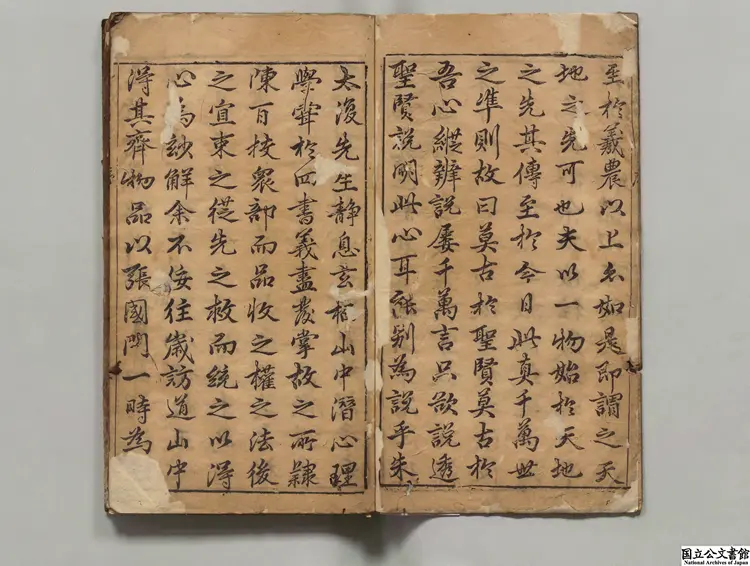 至於羲農以上亦如是即謂之天
地之先可也夫以一物始於天地
之先其傳至於今日此真千萬世
之準則故曰莫古於聖賢莫古於
吾心縱辨說屢千萬言只欲說透
聖賢說明此心耳詎別為說乎朱
太復先生靜息玄 山中潛心理
學 於四書義盡發掌故之所隸
陳百按衆部而品收之權之法後
之宜東之從先之 而統之以得
心為妙解余不佞往歲訪道山中
得其齊物品以張國門一時為
国立公文書館
National Archives of Japan